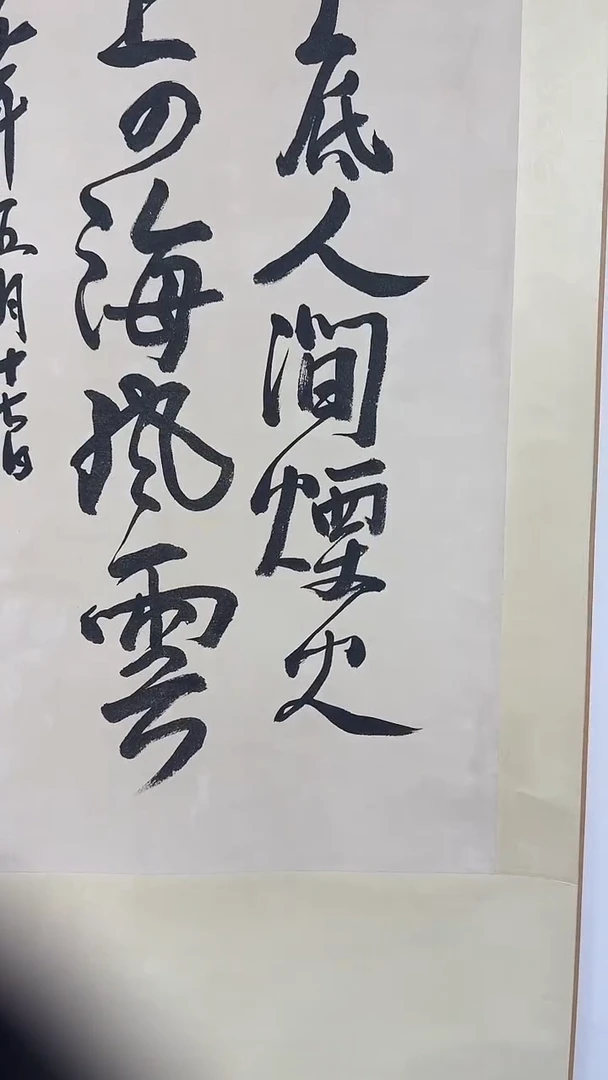 底人間煙火
上四海風雲
年五月十七日